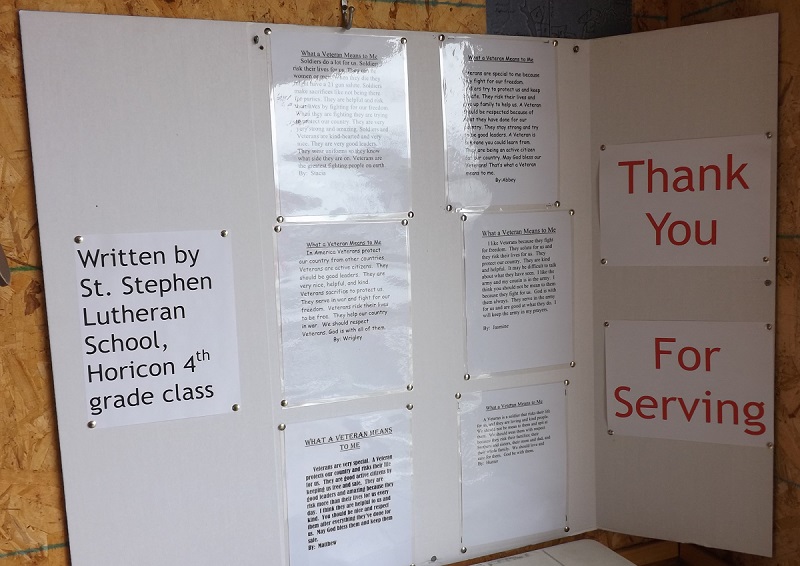 Written by
St. Stephen
Lutheran
School,
Horicon 4th
grade class
What a Veteran Means to Me
Soldiers do a lot for us. Soldiers
risk their lives for us. They can be
women or men. When they die they
might have a 21 gun salute. Soldiers
make sacrifices like not being there
for person. They are helpful and risk
their lives by fighting for our freedom.
When they are fighting they are trying
to protect our country. They are very
very strong and amazing. Soldiers and
Veterans are kind-hearted and very
nice. They are very good leaders.
They wear uniforms so they know
what side they are on. Veterans are
the greatest fighting people on earth
By: Stacia
What a Veteran Means to Me
In America Veterans protect
our country from other countries.
Veterans are active citizens. They
should be good leaders. They are
very nice, helpful, and kind.
Veterans sacrifice to protect us.
They serve in war and fight for our
freedom. Veterans risk their lives
to be free. They help our country
in war. We should respect
Veterans. God is with all of them.
By: Wrigley
WHAT A VETERAN MEANS
TO ME
Veterans are very special. A Veteran
protects our country and risks their life
for us. They are good active citizens by
keeping us free and safe. They are
good leaders and amazing because they
risk more than their lives for us every
day. I think they are helpful to us and
kind. You should be nice and respect
them after everything they've done for
us. May God bless them and keep them
safe.
By: Matthew
What a Veteran Means to Me
Veterans are special to me because
they fight for our freedom.
Soldiers try to protect us and keep
us safe. They risk their lives and
give up family to help us. A Veteran
should be respected because of
what they have done for our
country. They stay strong and try
to be good leaders. A Veteran is
someone you could learn from.
They are being an active citizen
for our country. May God bless our
Veterans! That's what a Veteran
means to me.
By: Abbey
What a Veteran Means to Me
I like Veterans because they fight
for our freedom. They salute for us and
they risk their lives for us. They
protect our country. They are kind
and helpful. It may be difficult to talk
about what they have seen. I like the
army and my cousin is in the army. I
think you should not be mean to them
because they fight for us. God is with
them always. They serve in the army
for us and are good at what they do. I
will keep the army in my prayers.
By: Jasmine
What a Veteran Means to Me
A Veteran is a soldier that risks their life
for us, and they are loving and kind people.
We should not be mean to them and not to
them. We should treat them with respect
because they risk their families, their
brothers and sisters, their mom and dad, and
their whole family. We should love and
care for them. God be with them.
By:
Thank
You
For
Serving